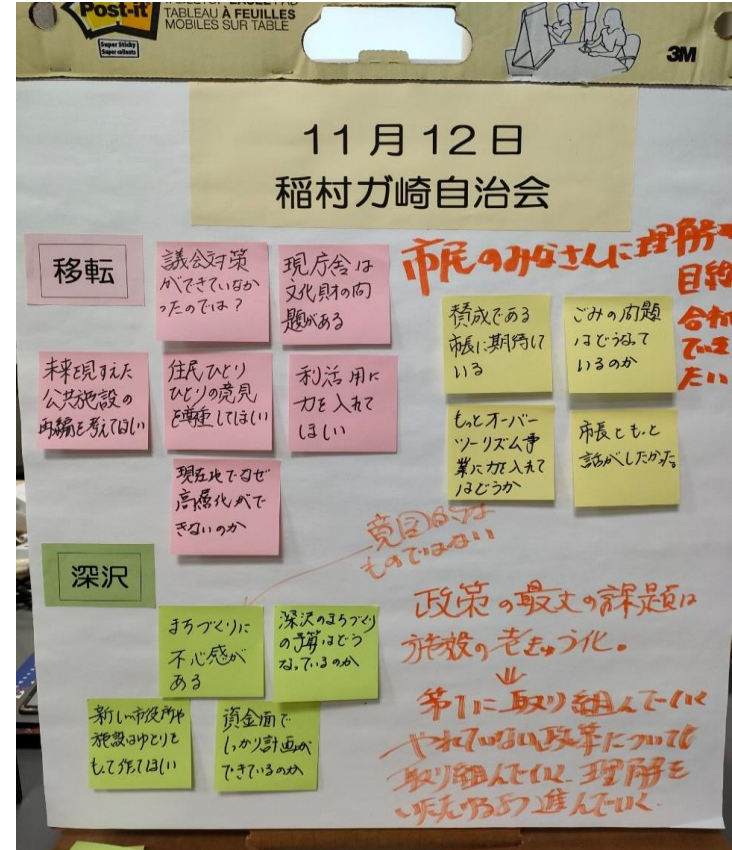 Post-it
TABLEAU À FEUILLES
MOBILES SUR TABLE
Super Sticky
3M
11月12日
稲村ガ崎自治会
移転
議会対策
ができていなか
ったのでは？
現庁舎は
文化財の問
題がある
未来を見すえた
公共施設の
再編を考えてほしい
住民ひとり
ひとりの意見
を尊重してほしい
利活用に
力を入れて
ほしい
現在地でなぜ
高層化がで
きないのか
市民のみなさんに理解
目線
合わ
でき
たい
賛成である
市長に期待して
いる
ごみの問題
はどうなって
いるのか
もっとオーバー
ツーリズム事
業に力を入れて
はどうか
市長ともっと
話がしたかった
深沢
意図的な
ものではない
まちづくりに
不心感が
ある
深沢のまちづくり
の予算はどう
なっているのか
新しい市役所や
施設はゆとりを
もって作ってほしい
資金面で
しっかり計画が
できているのか
政策の最大の課題は
施設の老きゅう化。
⇓
第1に取り組んでいく
やれていない政策についても
取り組んでいく。理解を
いただけるよう進んでいく。